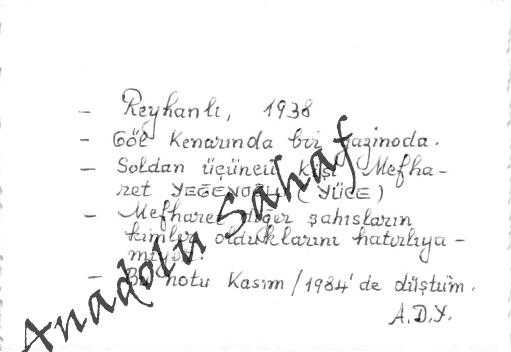 - Reyhanlı, 1938
- Göl kenarında bir gazinoda.
- Soldan üçüncü kişi Mefha-
ret YEĞENOĞLU (YÜCE)
- Mefharet diğer şahısların
kimler olduklarını hatırlıya-
mıyor.
- Bu notu Kasım/1984' de düştüm.
A.D.Y.
Anadolu Sahaf